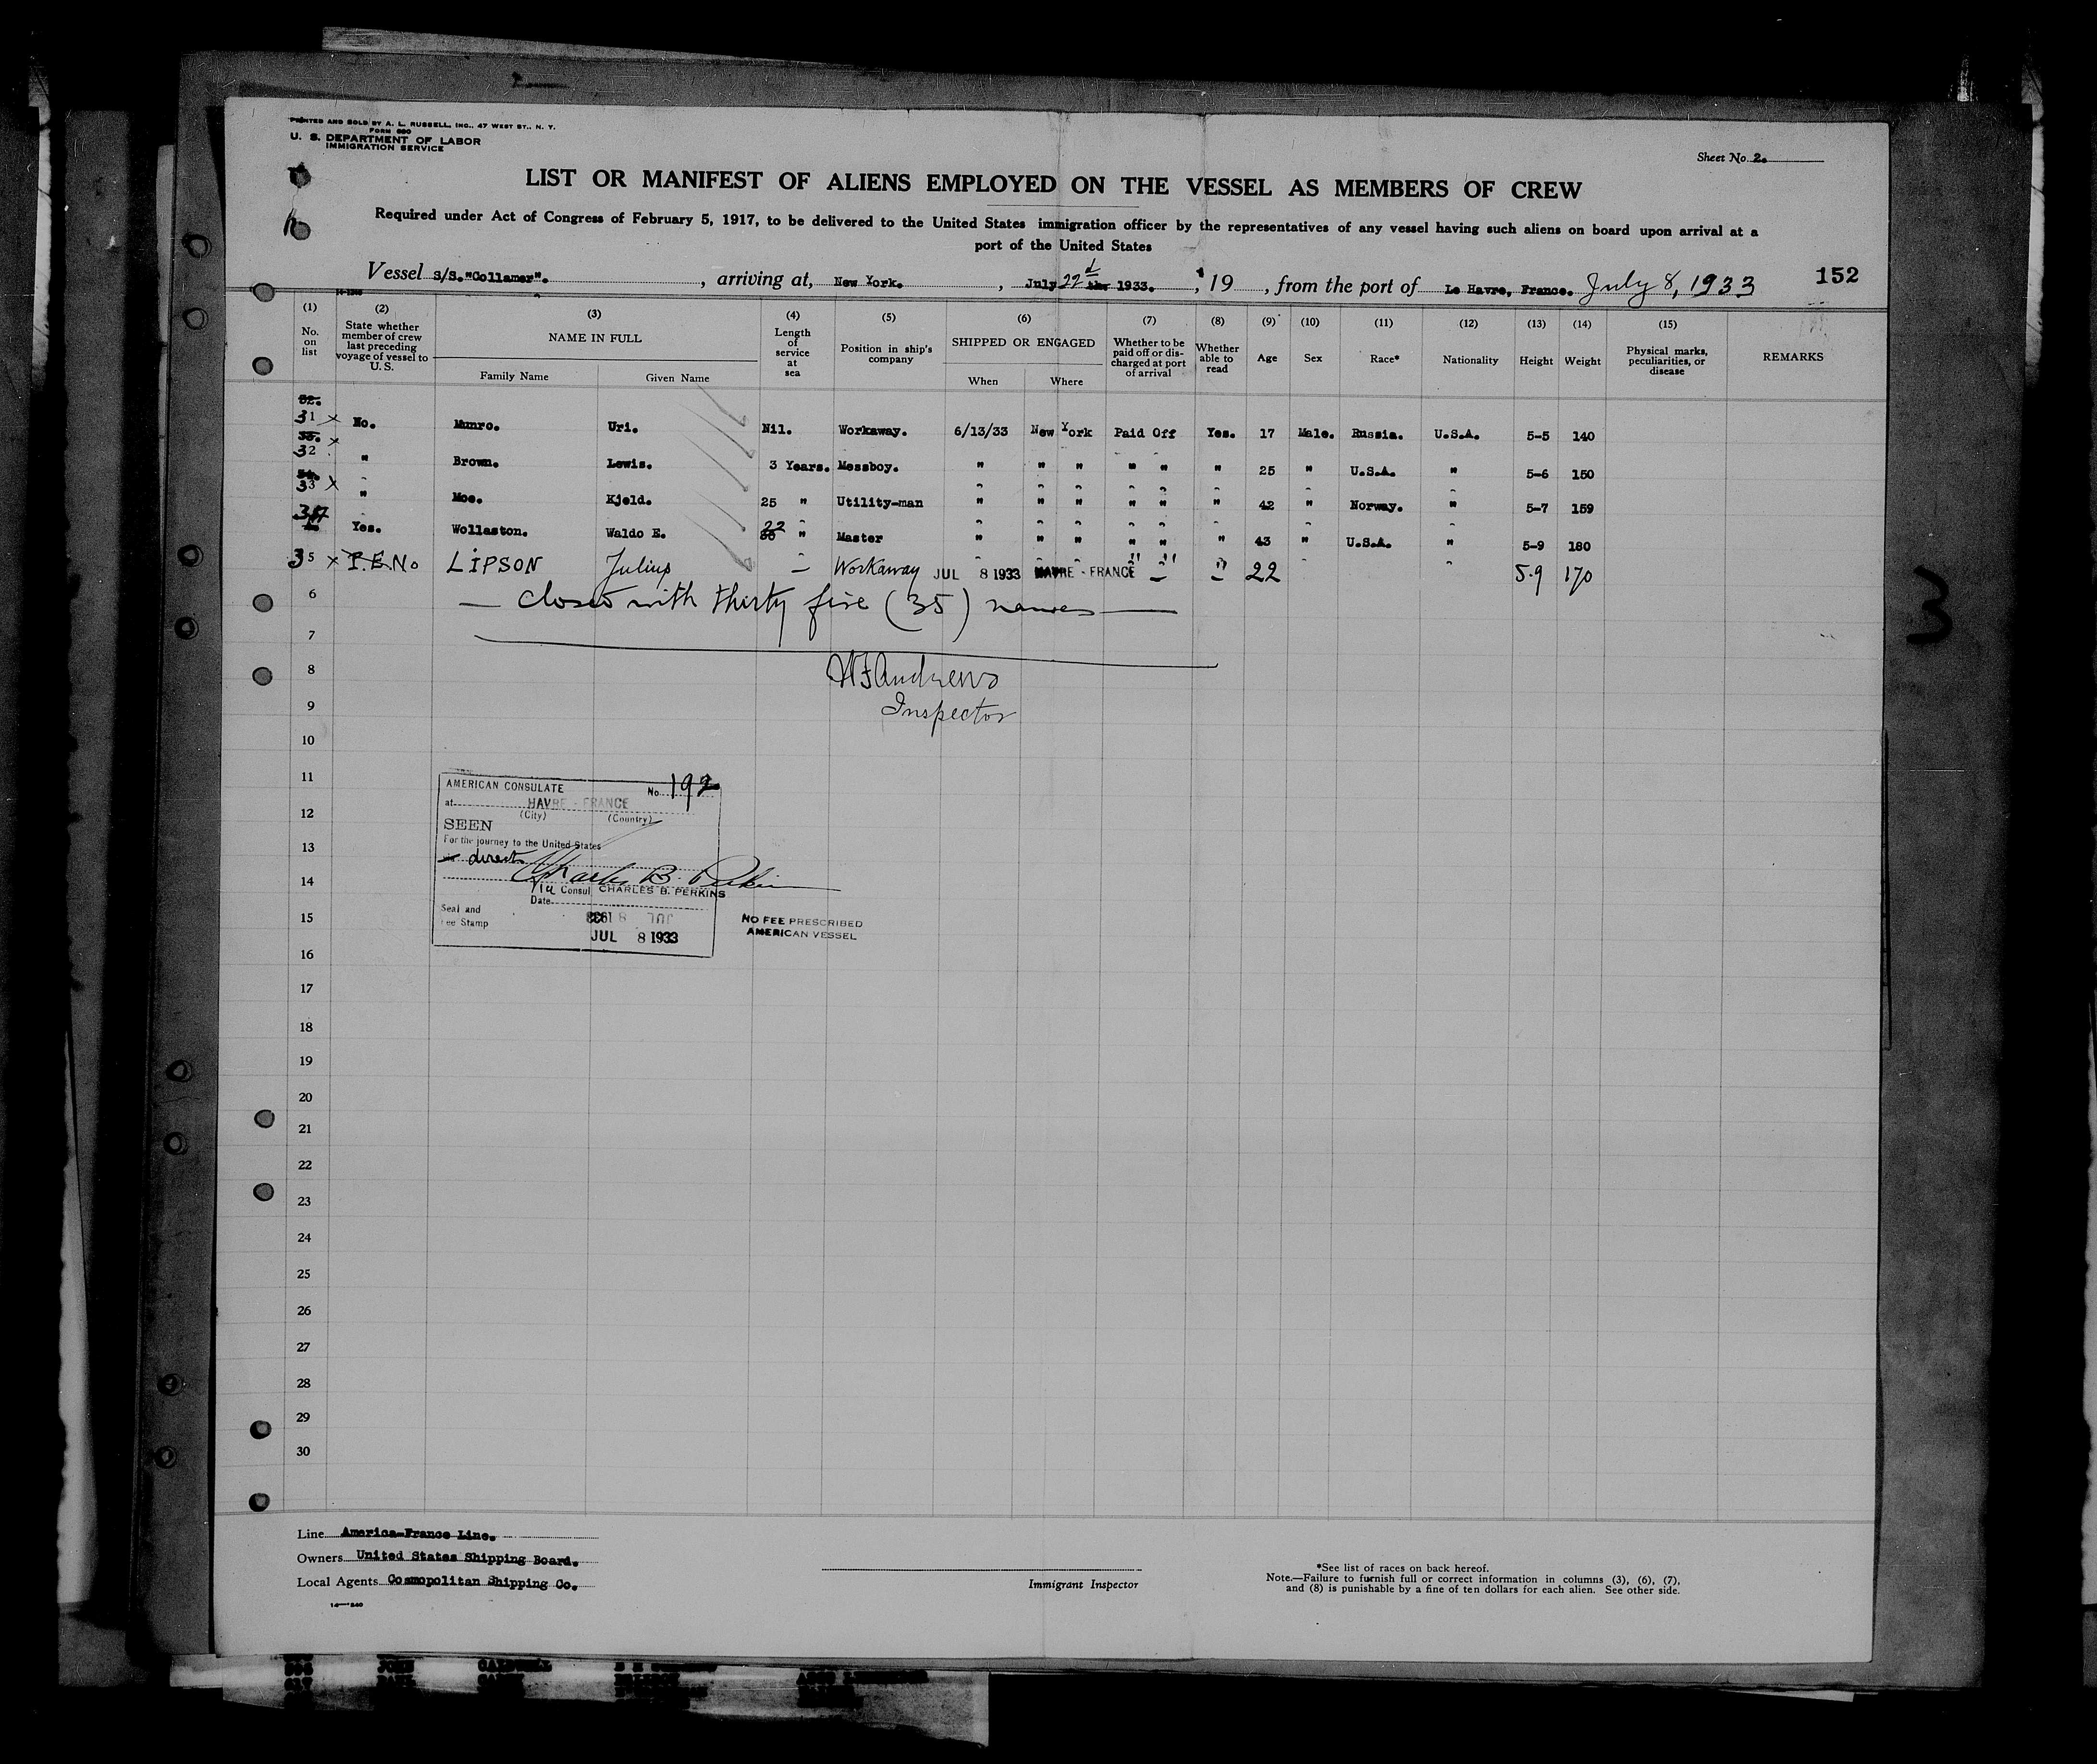 PRINTED AND SOLD BY A. L. RUSSELL, INC., 47 WEST ST., N. Y.
FORM 680
U. S. DEPARTMENT OF LABOR
IMMIGRATION SERVICE
Sheet No. 2.
LIST OR MANIFEST OF ALIENS EMPLOYED ON THE VESSEL AS MEMBERS OF CREW
Required under Act of Congress of February 5, 1917, to be delivered to the United States immigration officer by the representatives of any vessel having such aliens on board upon arrival at a
port of the United States
Vessel S/S. "Collamer". , arriving at, New York. , July 22d 1933. , 19 , from the port of Le Havre, France. July 8, 1933 152
(1) (2) (3) (4) (5) (6) (7) (8) (9) (10) (11) (12) (13) (14) (15)
No. on list State whether member of crew last preceding voyage of vessel to U. S. NAME IN FULL Family Name Given Name Length of service at sea Position in ship's company SHIPPED OR ENGAGED When Where Whether to be paid off or discharged at port of arrival Whether able to read Age Sex Race* Nationality Height Weight Physical marks, peculiarities, or disease REMARKS
31 x No. Munro. Uri. Nil. Workaway. 6/13/33 New York Paid Off Yes. 17 Male. Russia. U.S.A. 5-5 140
32 x " Brown. Lewis. 3 Years. Messboy. " " " " " " 25 " U.S.A. " 5-6 150
33 x " Moe. Kjeld. 25 " Utility-man " " " " " " 42 " Norway. " 5-7 159
34 Yes. Wollaston. Waldo E. 22 " Master " " " " " " 43 " U.S.A. " 5-9 180
35 x P.E. No LIPSON Julius — Workaway JUL 8 1933 HAVRE - FRANCE " " " 22 5.9 170
6 — Closed with thirty five (35) names —
7
8 W F Andrews
9 Inspector
10
11
12
13
14
15
16
17
18
19
20
21
22
23
24
25
26
27
28
29
30
AMERICAN CONSULATE No. 192
at HAVRE - FRANCE
(City) (Country)
SEEN
For the journey to the United States
via direct
Charles B. Perkins
Vice Consul CHARLES B. PERKINS
Date
Seal and
Fee Stamp
JUL 8 1933
NO FEE PRESCRIBED
AMERICAN VESSEL
3
Line America-France Line.
Owners United States Shipping Board.
Local Agents Cosmopolitan Shipping Co.
Immigrant Inspector
*See list of races on back hereof.
Note.—Failure to furnish full or correct information in columns (3), (6), (7),
and (8) is punishable by a fine of ten dollars for each alien. See other side.